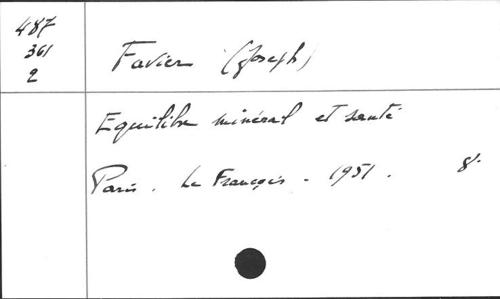 487
361
2
Favier (Joseph)
Equilibre minéral et santé
Paris. Le François - 1951. 8°